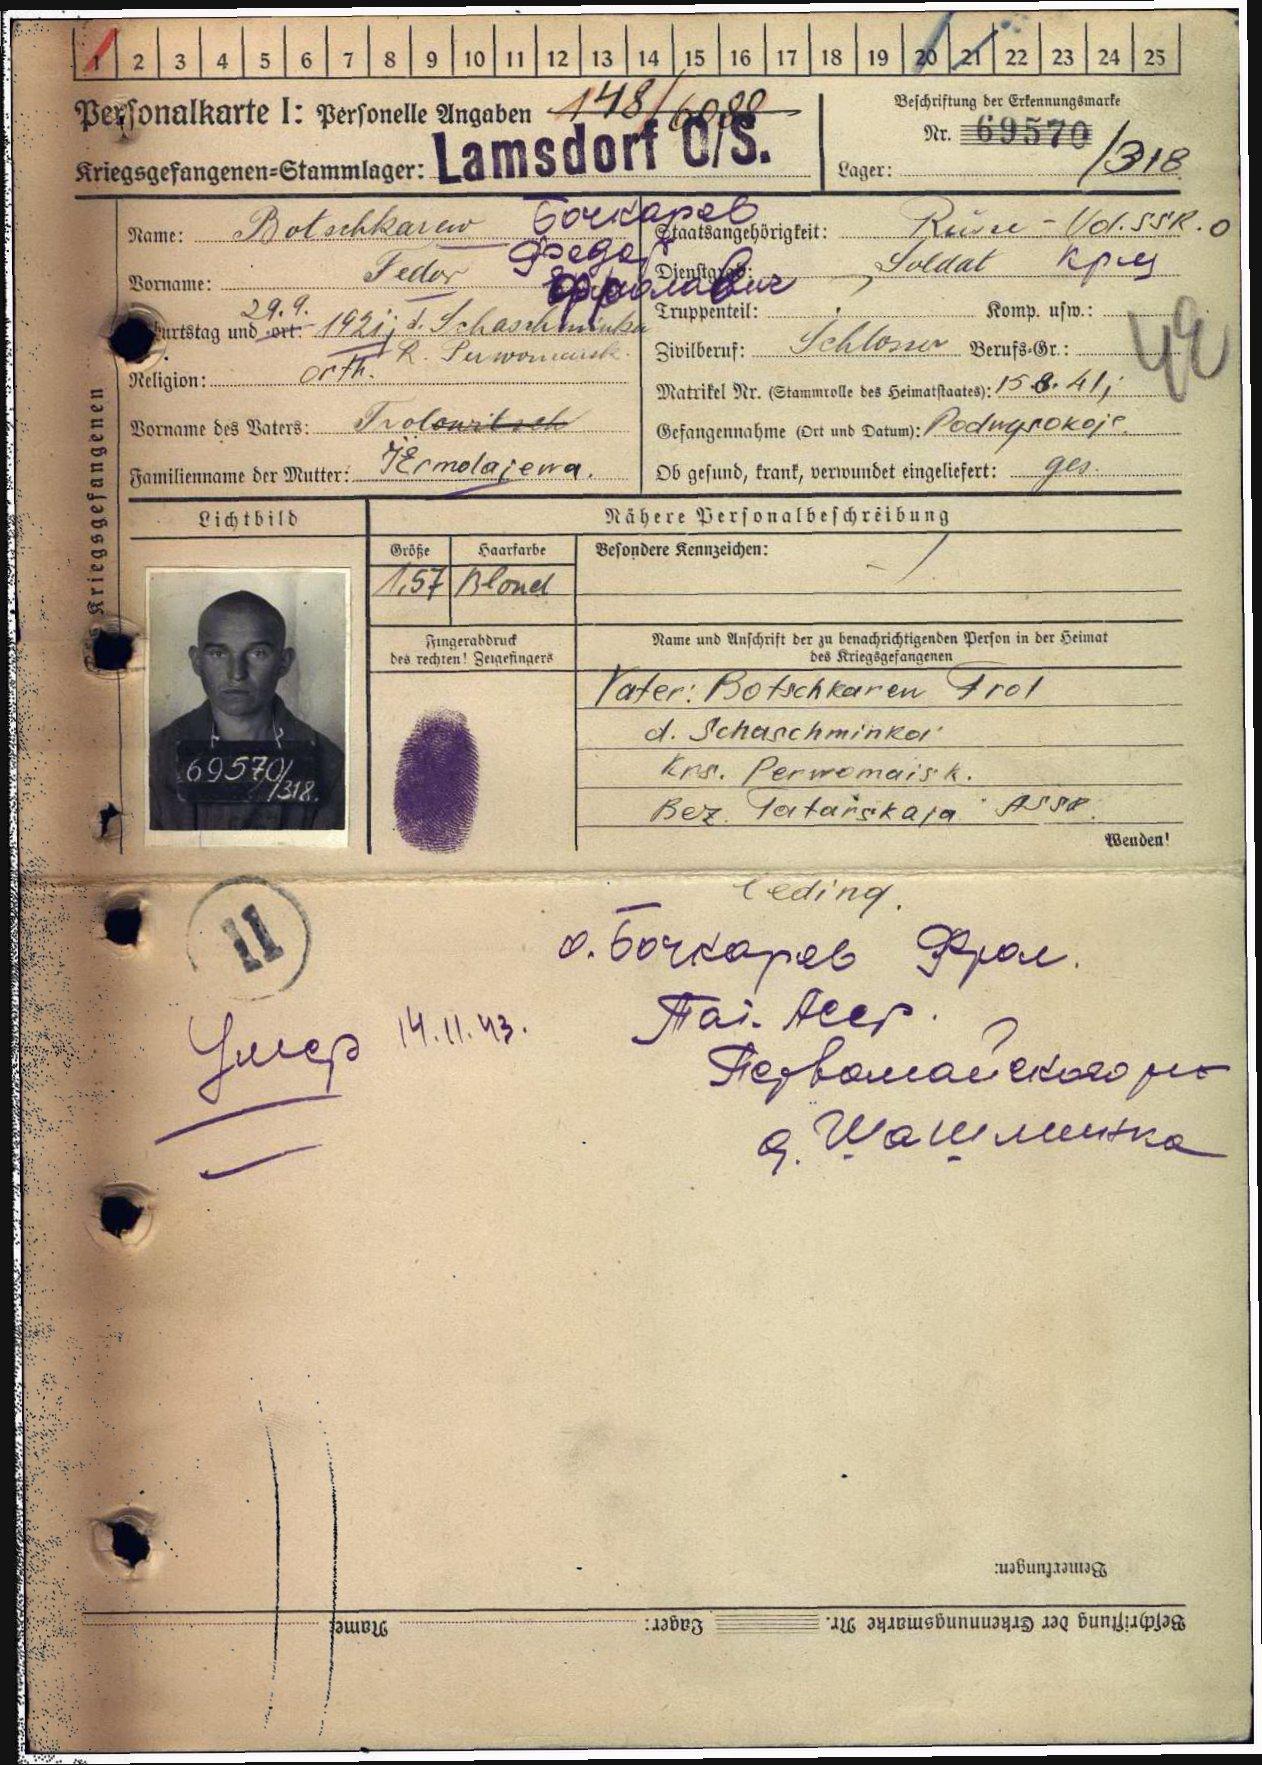 1 2 3 4 5 6 7 8 9 10 11 12 13 14 15 16 17 18 19 20 21 22 23 24 25
Personalkarte I: Personelle Angaben 148/6088
Kriegsgefangenen-Stammlager: Lamsdorf O/S.
Beschriftung der Erkennungsmarke
Nr. 69570
Lager: /318
des Kriegsgefangenen
Name: Botschkarew Бочкарев
Vorname: Fedor Федор
Фролович
29.9.
Geburtstag und -ort: 1921; d. Schaschminka
R. Perwomaisk.
Religion: orth.
Vorname des Vaters: Frolowitsch
Familienname der Mutter: Jermolajewa.
Staatsangehörigkeit: Russe - Ud.SSR. o
Dienstgrad: Soldat Кр-ц
Truppenteil: Komp. usw.:
Zivilberuf: Schlosser Berufs-Gr.:
Matrikel Nr. (Stammrolle des Heimatstaates): 15.8.41;
Gefangennahme (Ort und Datum): Podwysokoje
Ob gesund, krank, verwundet eingeliefert: ges.
Lichtbild
69570/
/318.
Nähere Personalbeschreibung
Größe Haarfarbe Besondere Kennzeichen:
1,57 Blond
Fingerabdruck
des rechten! Zeigefingers
Name und Anschrift der zu benachrichtigenden Person in der Heimat
des Kriegsgefangenen
Vater: Botschkarew Frol
d. Schaschminka
Krs. Perwomaisk.
Bez. Tatarskaja ASSR.
Wenden!
II
о. Бочкарев Фрол.
Тат. Асср.
Первомайского р-на
д. Шашминка
Умер 14.11.43.
Bemerkungen:
Name: Lager: Beschriftung der Erkennungsmarke Nr.